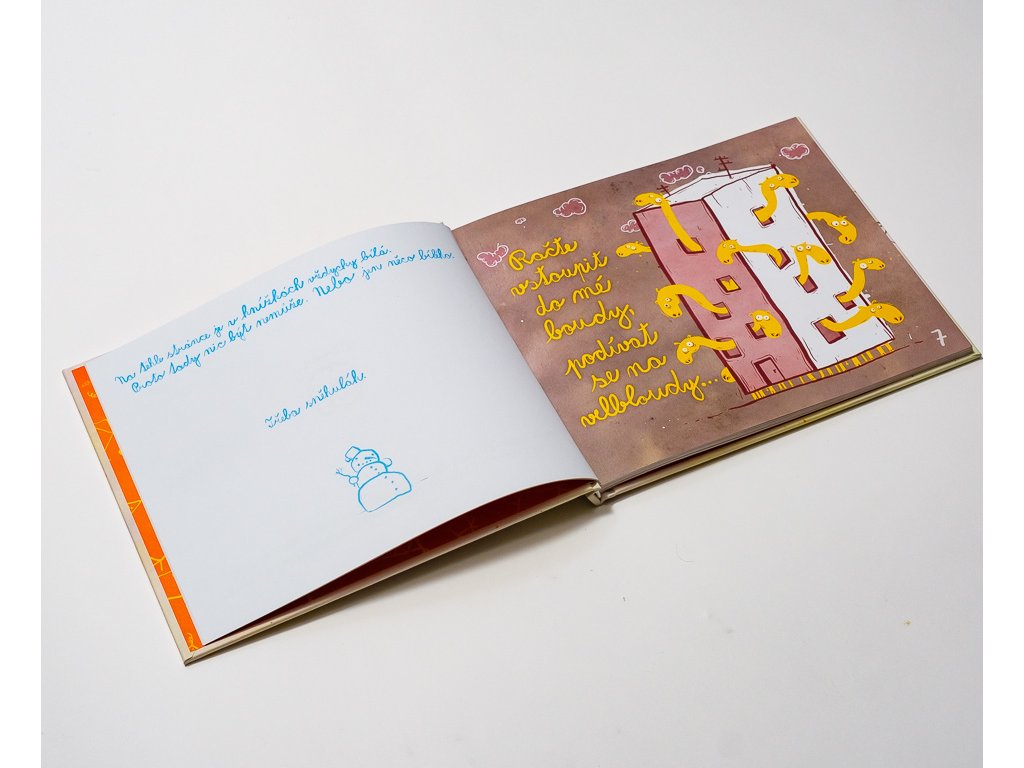 Na téhle stránce je v knížkách vždycky bílá.
Proto tady nic být nemůže. Nebo jen něco bílého.
Třeba sněhulák.
Račte
vstoupit
do mé
boudy,
podívat
se na
velbloudy...
7